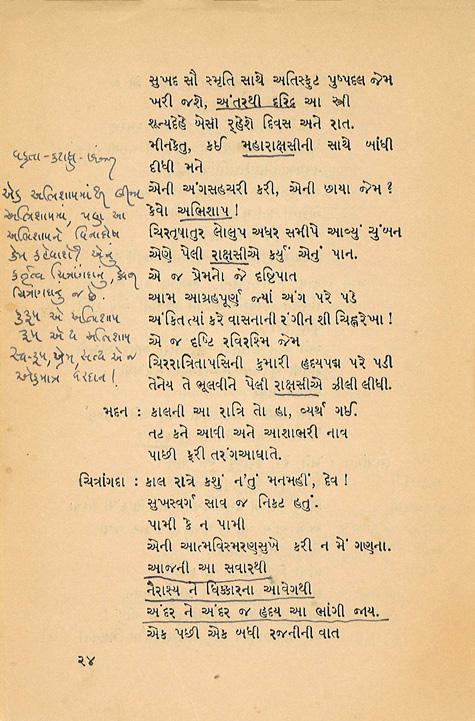 સુખદ સૌ સ્મૃતિ સાથે અતિસ્ફુટ પુષ્પદલ જેમ
ખરી જશે, અંતરથી દરિદ્ર આ સ્ત્રી
શૂન્યદેહે બેસી ર્‌હેશે દિવસ અને રાત.
મીનકેતુ, કઈ મહારાક્ષસીની સાથે બાંધી
દીધી મને
એની અંગસહચરી કરી, એની છાયા જેમ ?
કેવો અભિશાપ !
ચિરતૃષાતુર લોલુપ અધર સમીપે આવ્યું ચુંબન
એણે પેલી રાક્ષસીએ કર્યું એનું પાન.
એ જ પ્રેમનો જે દૃષ્ટિપાત
આમ આગ્રહપૂર્ણ જ્યાં અંગ પરે પડે
અંકિત ત્યાં કરે વાસનાની રંગીન શી ચિહ્નરેખા !
એ જ દૃષ્ટિ રવિરશ્મિ જેમ
ચિરરાત્રિતાપસિની કુમારી હૃદયપદ્મ પરે પડી
તેનેય તે ભૂલવીને પેલી રાક્ષસીએ ઝીલી લીધી.
મદન : કાલની આ રાત્રિ તો હા, વ્યર્થ ગઈ.
તટ કને આવી અને આશાભરી નાવ
પાછી ફરી તરંગઆઘાતે.
ચિત્રાંગદા : કાલ રાત્રે કશું ન'તું મનમહીં, દેવ !
સુખસ્વર્ગ સાવ જ નિકટ હતું.
પામી કે ન પામી
એની આત્મવિસ્મરણસુખે કરી ન મેં ગણના.
આજની આ સવારથી
નૈરાશ્ય ને ધિક્કારના આવેગથી
અંદર ને અંદર જ હૃદય આ ભાંગી જાય.
એક પછી એક બધી રજનીની વાત
એક અભિશાપમાંથી બીજા
અભિશાપમાં, પણ આ
અભિશાપને
ચિત્રાંગદાનું જ છે.
કુરૂપ એ અભિશાપ
રૂપ એ ય અભિશાપ
સ્વ-રૂપ, પ્રેમ, સત્ય એ જ
એકમાત્ર વરદાન !
૨૪